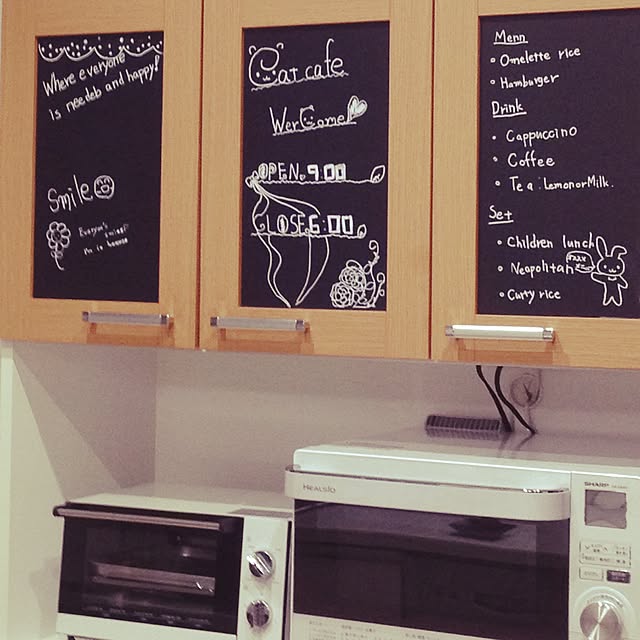 Where everyone
is needeb and happy!
Smile
Everyone's smiley
Cat cafe
WerCome!
OPEN. 9:00
CLOSE. 6:00
Menn
Omelette rice
Hamburger
Drink
Cappuccino
Coffee
Tea : LemonorMilk.
Set
Children lunch
Neapolitan
Curry rice
HEALSIO
SHARP